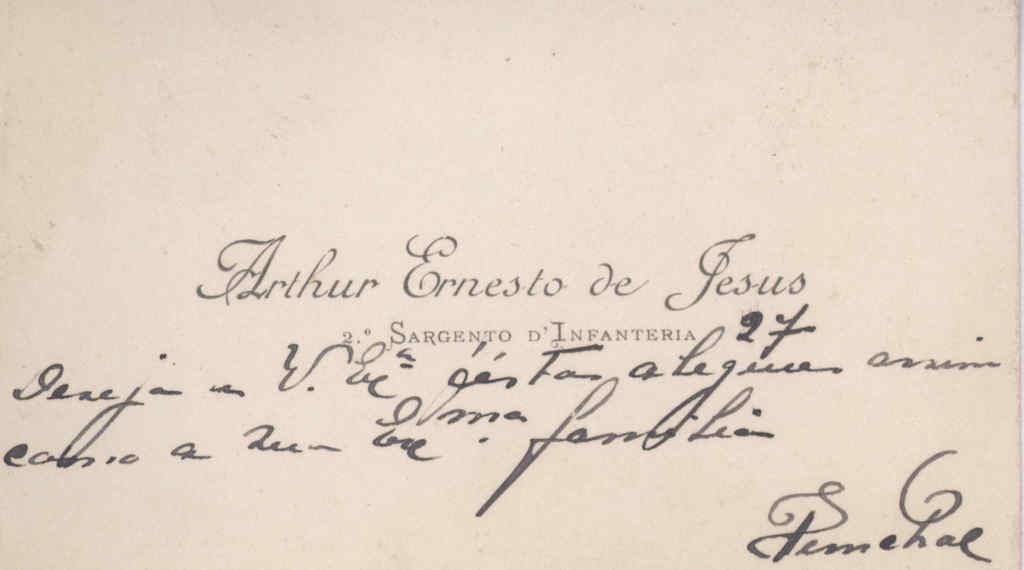 Arthur Ernesto de Jesus
2.º SARGENTO D'INFANTERIA 27
Deseja a V. Exª féstas alegres assim
como a sua Exma. familia
Funchal